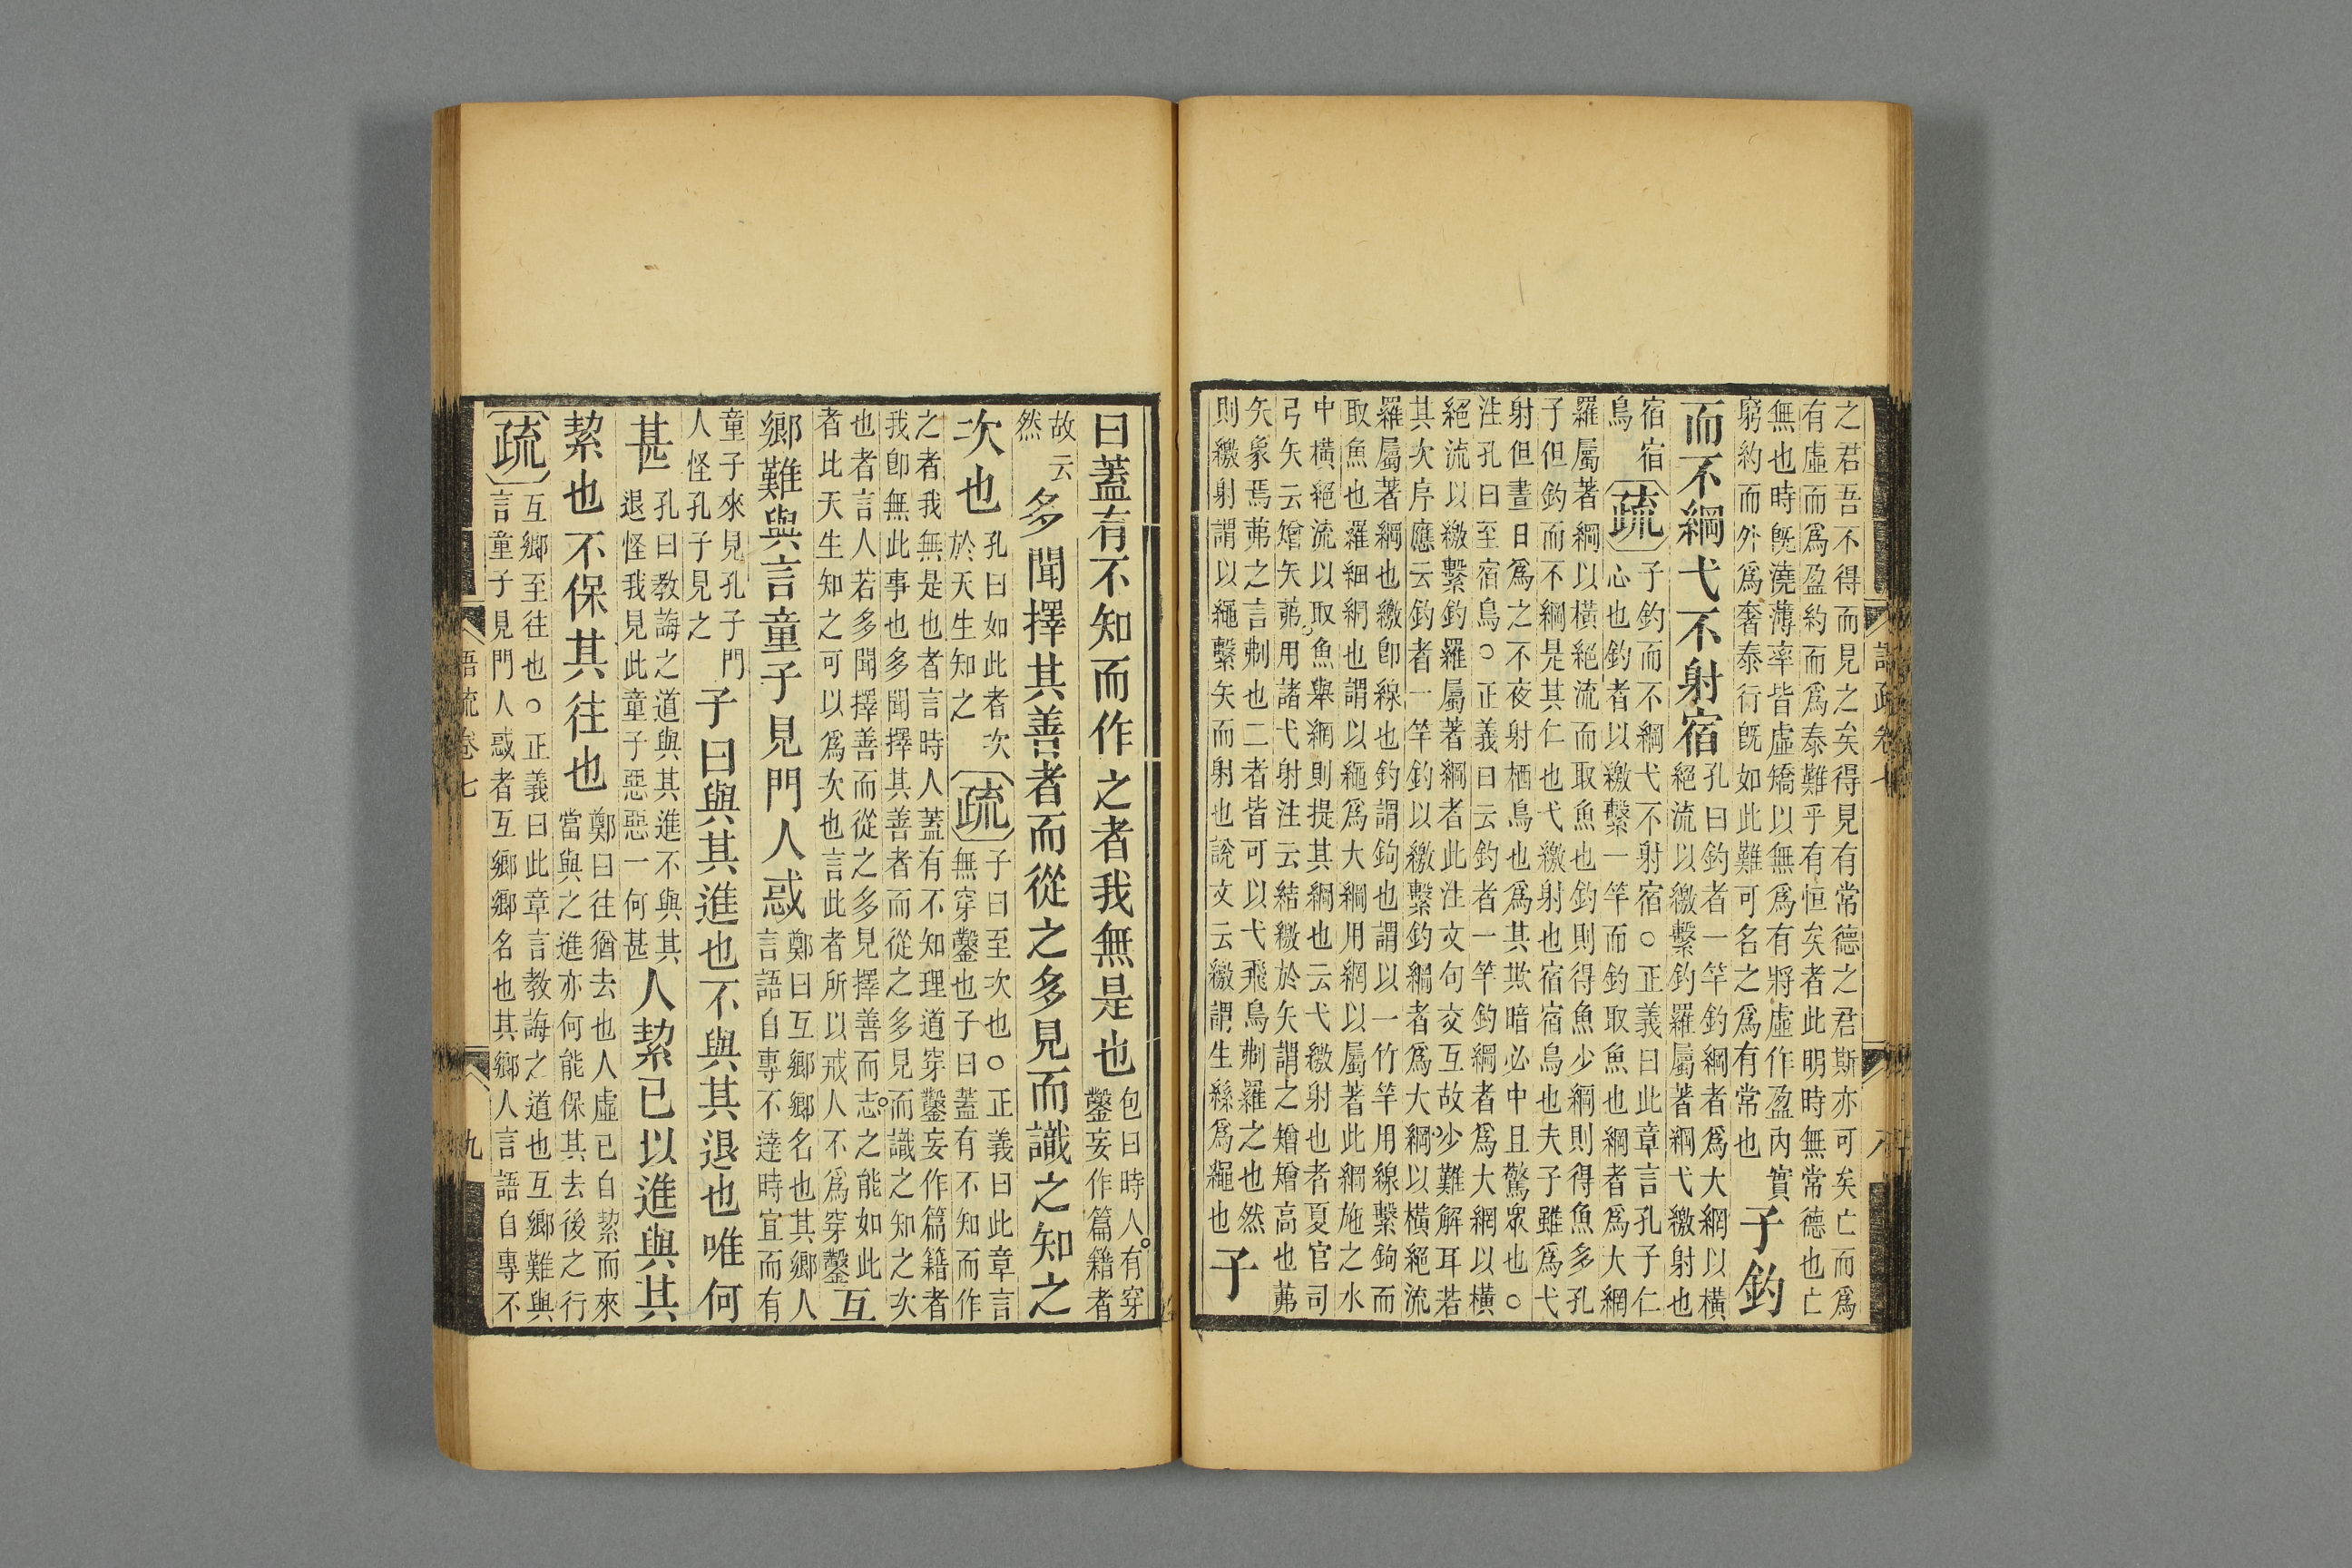 語疏卷七
八
之君吾不得而見之矣得見有常德之君斯亦可矣亡而爲
有虛而爲盈約而爲泰難乎有恒矣者此明時無常德也亡
無也時旣澆薄率皆虛矯以無爲有將虛作盈內實
窮約而外爲奢泰行旣如此難可名之爲有常也
子釣
而不綱弋不射宿
孔曰釣者一竿釣綱者爲大網以橫
絕流以繳繫釣羅屬著綱弋繳射也
宿宿
鳥
疏
子釣而不綱弋不射宿○正義曰此章言孔子仁
心也釣者以繳繫一竿而釣取魚也綱者爲大網
羅屬著綱以橫絕流而取魚也釣則得魚少綱則得魚多孔
子但釣而不綱是其仁也弋繳射也宿宿鳥也夫子雖爲弋
射但晝日爲之不夜射栖鳥也爲其欺暗必中且驚衆也○
注孔曰至宿鳥○正義曰云釣者一竿釣綱者爲大網以橫
絕流以繳繫釣羅屬著綱者此注文句交互故少難解耳若
其次序應云釣者一竿釣以繳繫釣綱者爲大網以橫絕流
羅屬著綱也繳卽線也釣謂鉤也謂以一竹竿用線繫鉤而
取魚也羅細網也謂以繩爲大綱用網以屬著此綱施之水
中橫絕流以取魚舉網則提其綱也云弋繳射也者夏官司
弓矢云矰矢茀用諸弋射注云結繳於矢謂之矰矰高也茀
矢象焉茀之言刜也二者皆可以弋飛鳥刜羅之也然
則繳射謂以繩繫矢而射也說文云繳謂生絲爲繩也
子
曰蓋有不知而作之者我無是也
包曰時人有穿
鑿妄作篇籍者
故云
然
多聞擇其善者而從之多見而識之知之
次也
孔曰如此者次
於天生知之
疏
子曰至次也○正義曰此章言
無穿鑿也子曰蓋有不知而作
之者我無是也者言時人蓋有不知理道穿鑿妄作篇籍者
我卽無此事也多聞擇其善者而從之多見而識之知之次
也者言人若多聞擇善而從之多見擇善而志之能如此
者比天生知之可以爲次也言此者所以戒人不爲穿鑿
互
鄉難與言童子見門人惑
鄭曰互鄉鄉名也其鄉人
言語自專不達時宜而有
童子來見孔子門
人怪孔子見之
子曰與其進也不與其退也唯何
甚
孔曰教誨之道與其進不與其
退怪我見此童子惡惡一何甚
人絜已以進與其
絜也不保其往也
鄭曰往猶去也人虛已自絜而來
當與之進亦何能保其去後之行
疏
互鄉至往也○正義曰此章言教誨之道也互鄉難與
言童子見門人惑者互鄉鄉名也其鄉人言語自專不
語疏卷七
九